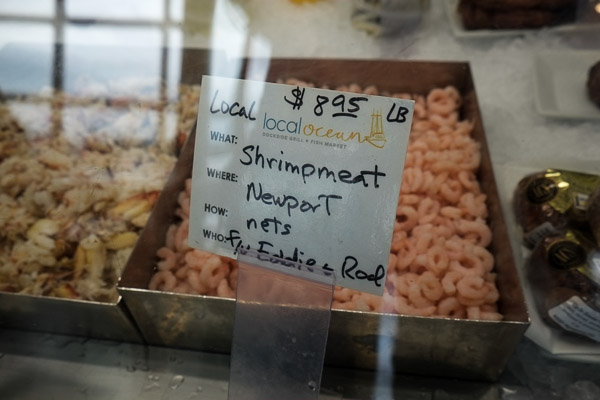 Local $8.95 LB
local ocean
DOCKSIDE GRILL & FISH MARKET
WHAT: Shrimpmeat
WHERE: Newport
HOW: nets
WHO: F/V Eddie & Rod